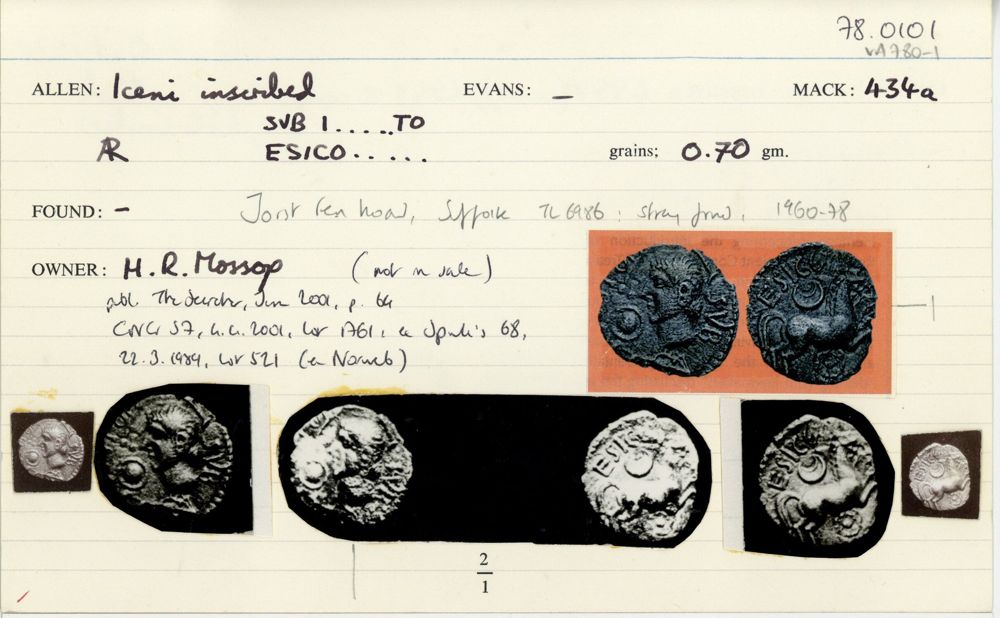 78.0101
VA780-1
ALLEN: Iceni inscribed EVANS: – MACK: 434a
SVB I.....TO
AR ESICO...... grains; 0.70 gm.
FOUND: – Joist Fen hoard, Suffolk TL 6986: stray find, 1960-78
OWNER: H. R. Mossop (not in sale)
publ. The Searcher, 2001, p. 64
57, 2001, Lot 1761, ex 68,
22.3.1989, Lot 521 (ex Norweb)
1
2
1